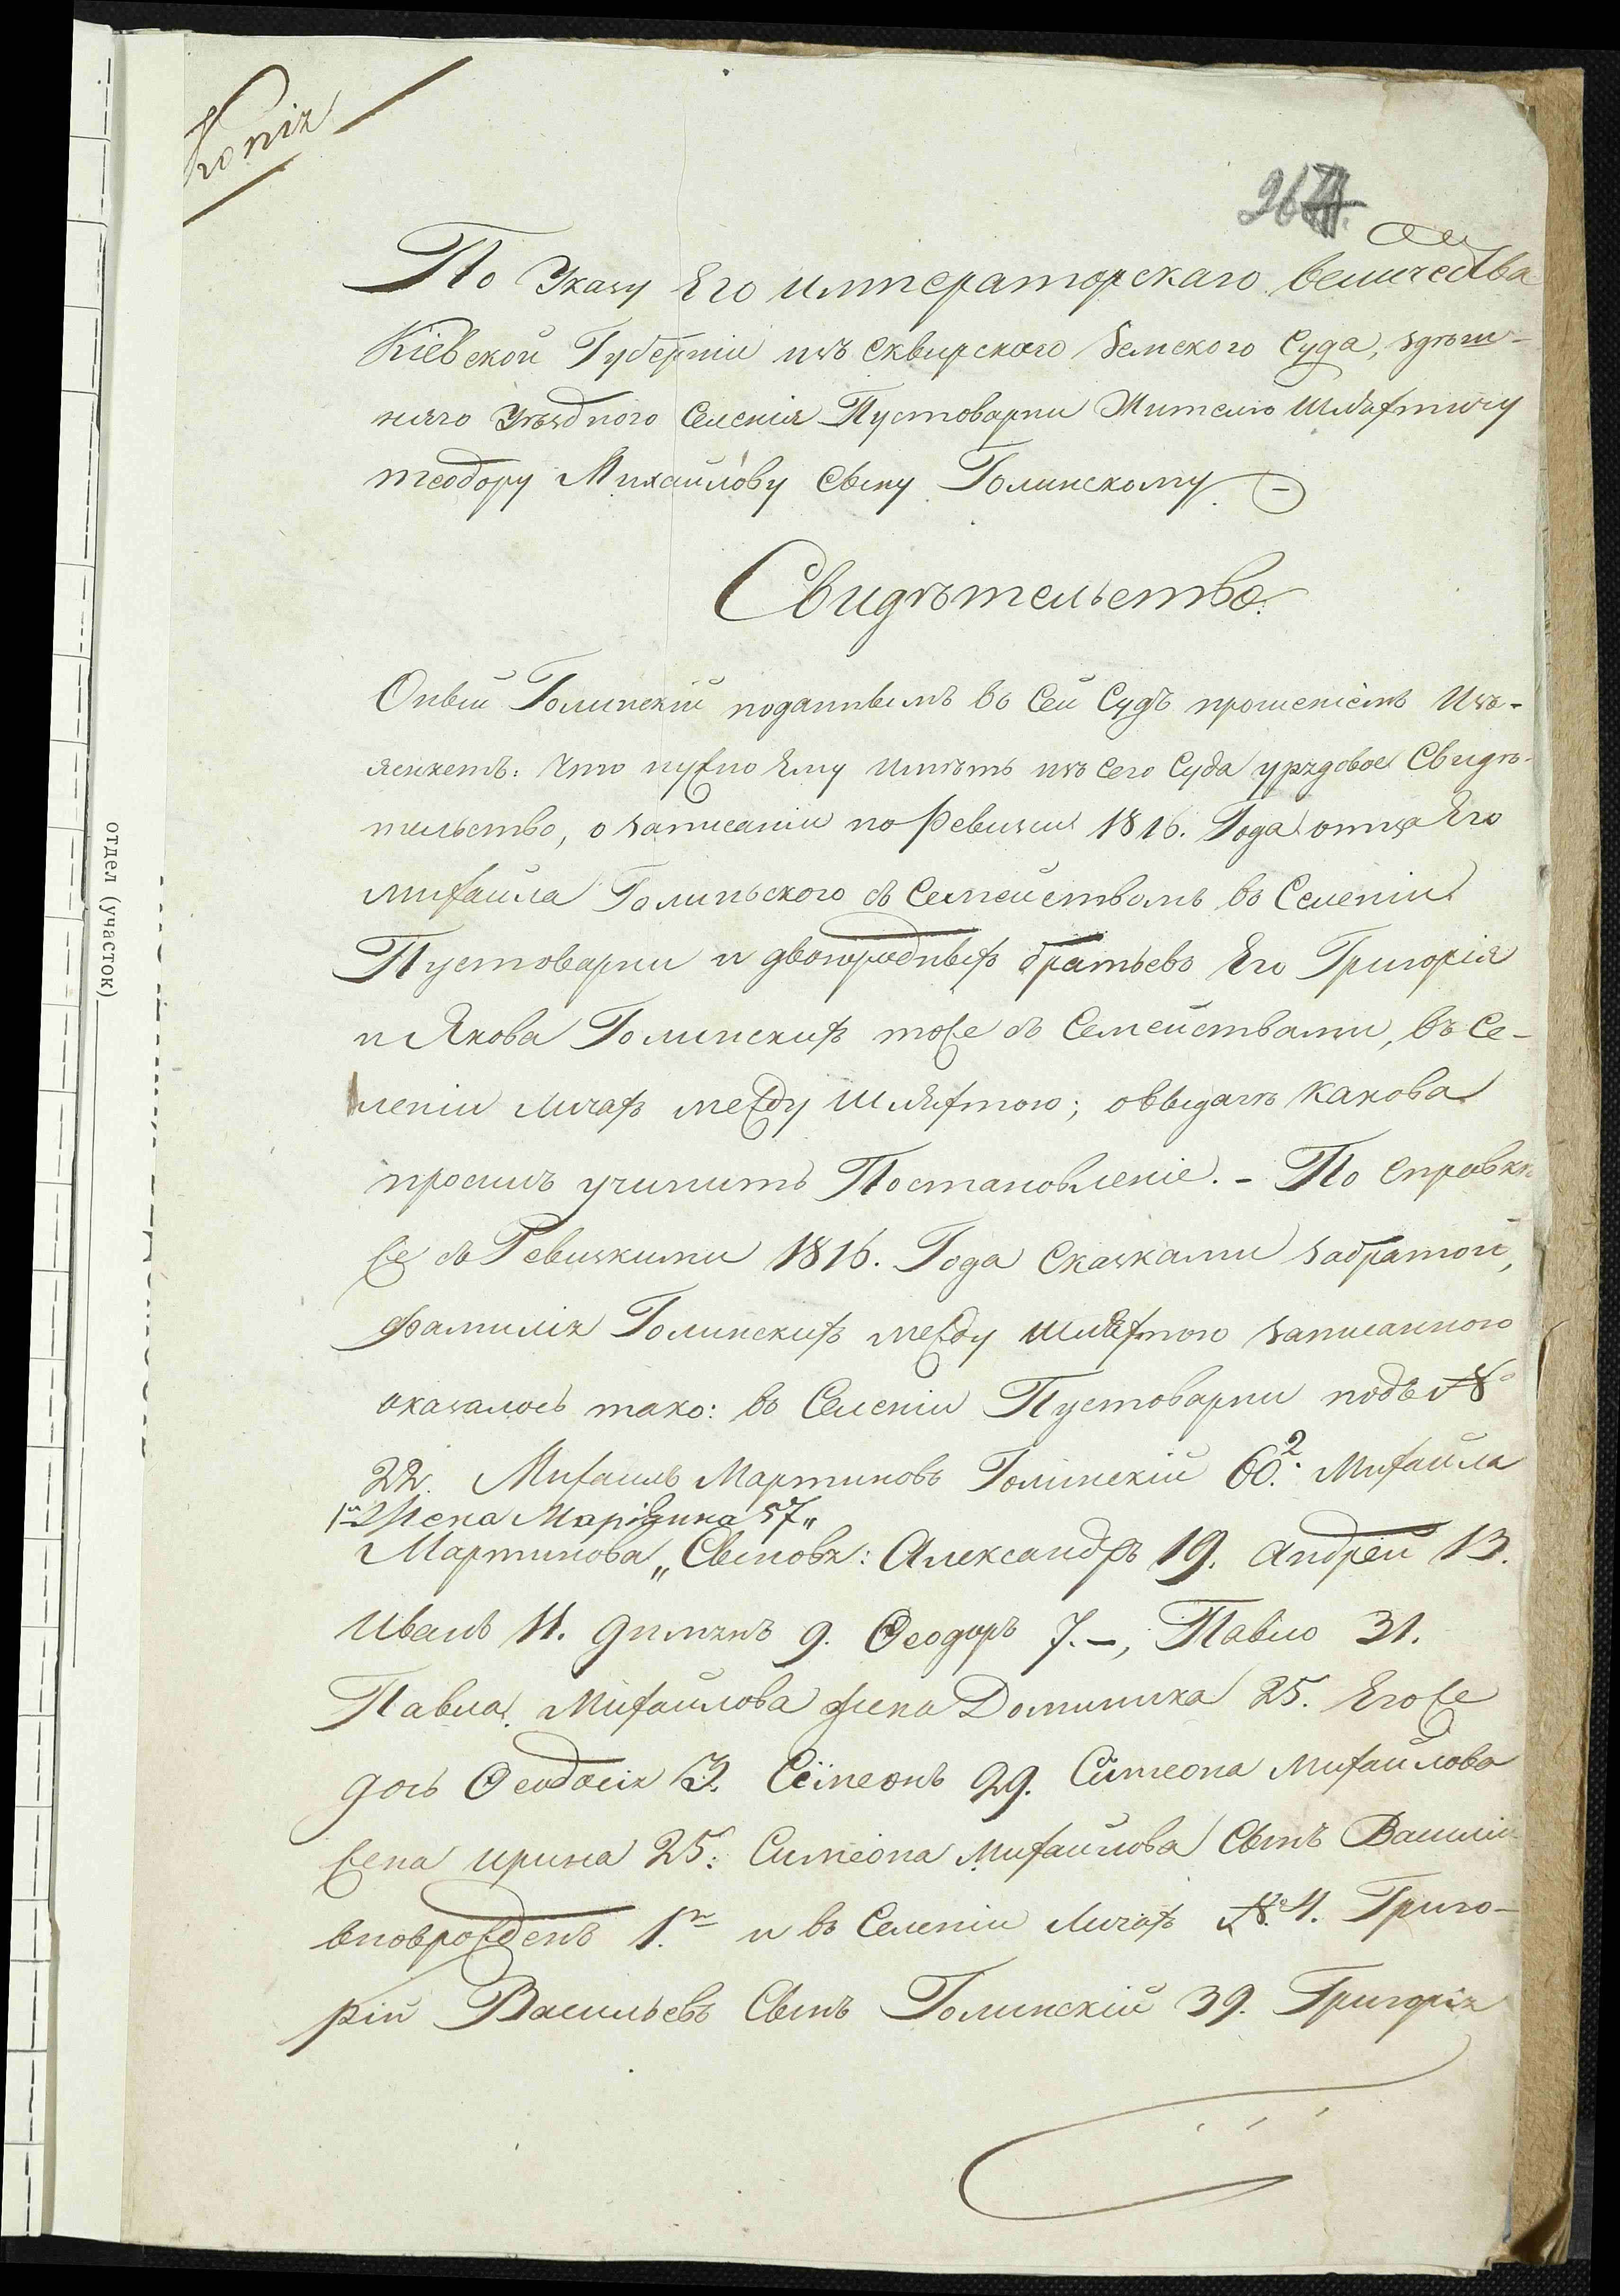 Копія
264
По Указу Его императорскаго величества
Кіевской Губерніи изъ Сквирского Земского Суда, здѣш-
няго уѣздного Селенія Пустоварни Жителю Шляхтичу
теодору Михайлову Сыну Голинскому. –
Свидѣтельство.
Оный Голинскій поданнымъ во Сей Судъ прошеніемъ Изъ-
ясняетъ: что нужно Ему имѣть изъ сего Суда урядовое Свидѣ-
тельство, о записаніи по Ревизіи 1816. Года отца Его
михайла Голинського съ Семействомъ во Селеніи
Пустоварни и двоюродныхъ братьевъ Его Григорія
и Якова Голинскихъ тоже съ Семействами, въ Се-
леніи личахъ между Шляхтою; о выдачѣ какова
просилъ учинить Постановленіе. – По справкѣ
же съ Ревизкими 1816. Года Сказками забратой,
фамилія Голинскихъ между шляхтою записанною
оказалось тако: во Селеніи Пустоварни подъ №
22. Михаилъ Мартиновъ Голинскій 60. 2 Михайла
1я Жена Маріянна 57 „
Мартинова „ Сыновя: Александръ 19. андрей 13.
иванъ 11. диміянъ 9. Ѳеодоръ 7. –, Павло 31.
Павла Михайлова жена Доминика 25. Егоже
дочь Ѳеодосія 3. Сімеонъ 29. Симеона михайлова
жена ирина 25. Симеона Михайлова Сынъ Василій
вноврожденъ 1. и въ Селеніи личахъ № 4. Григо-
рій Васильевъ Сынъ Голинскій 39. Григорія
отдел (участок)